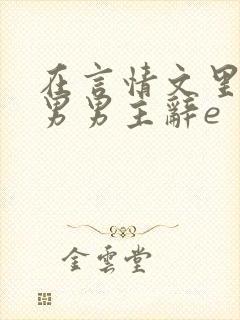 在言情文里
男男主辭e
金雲堂